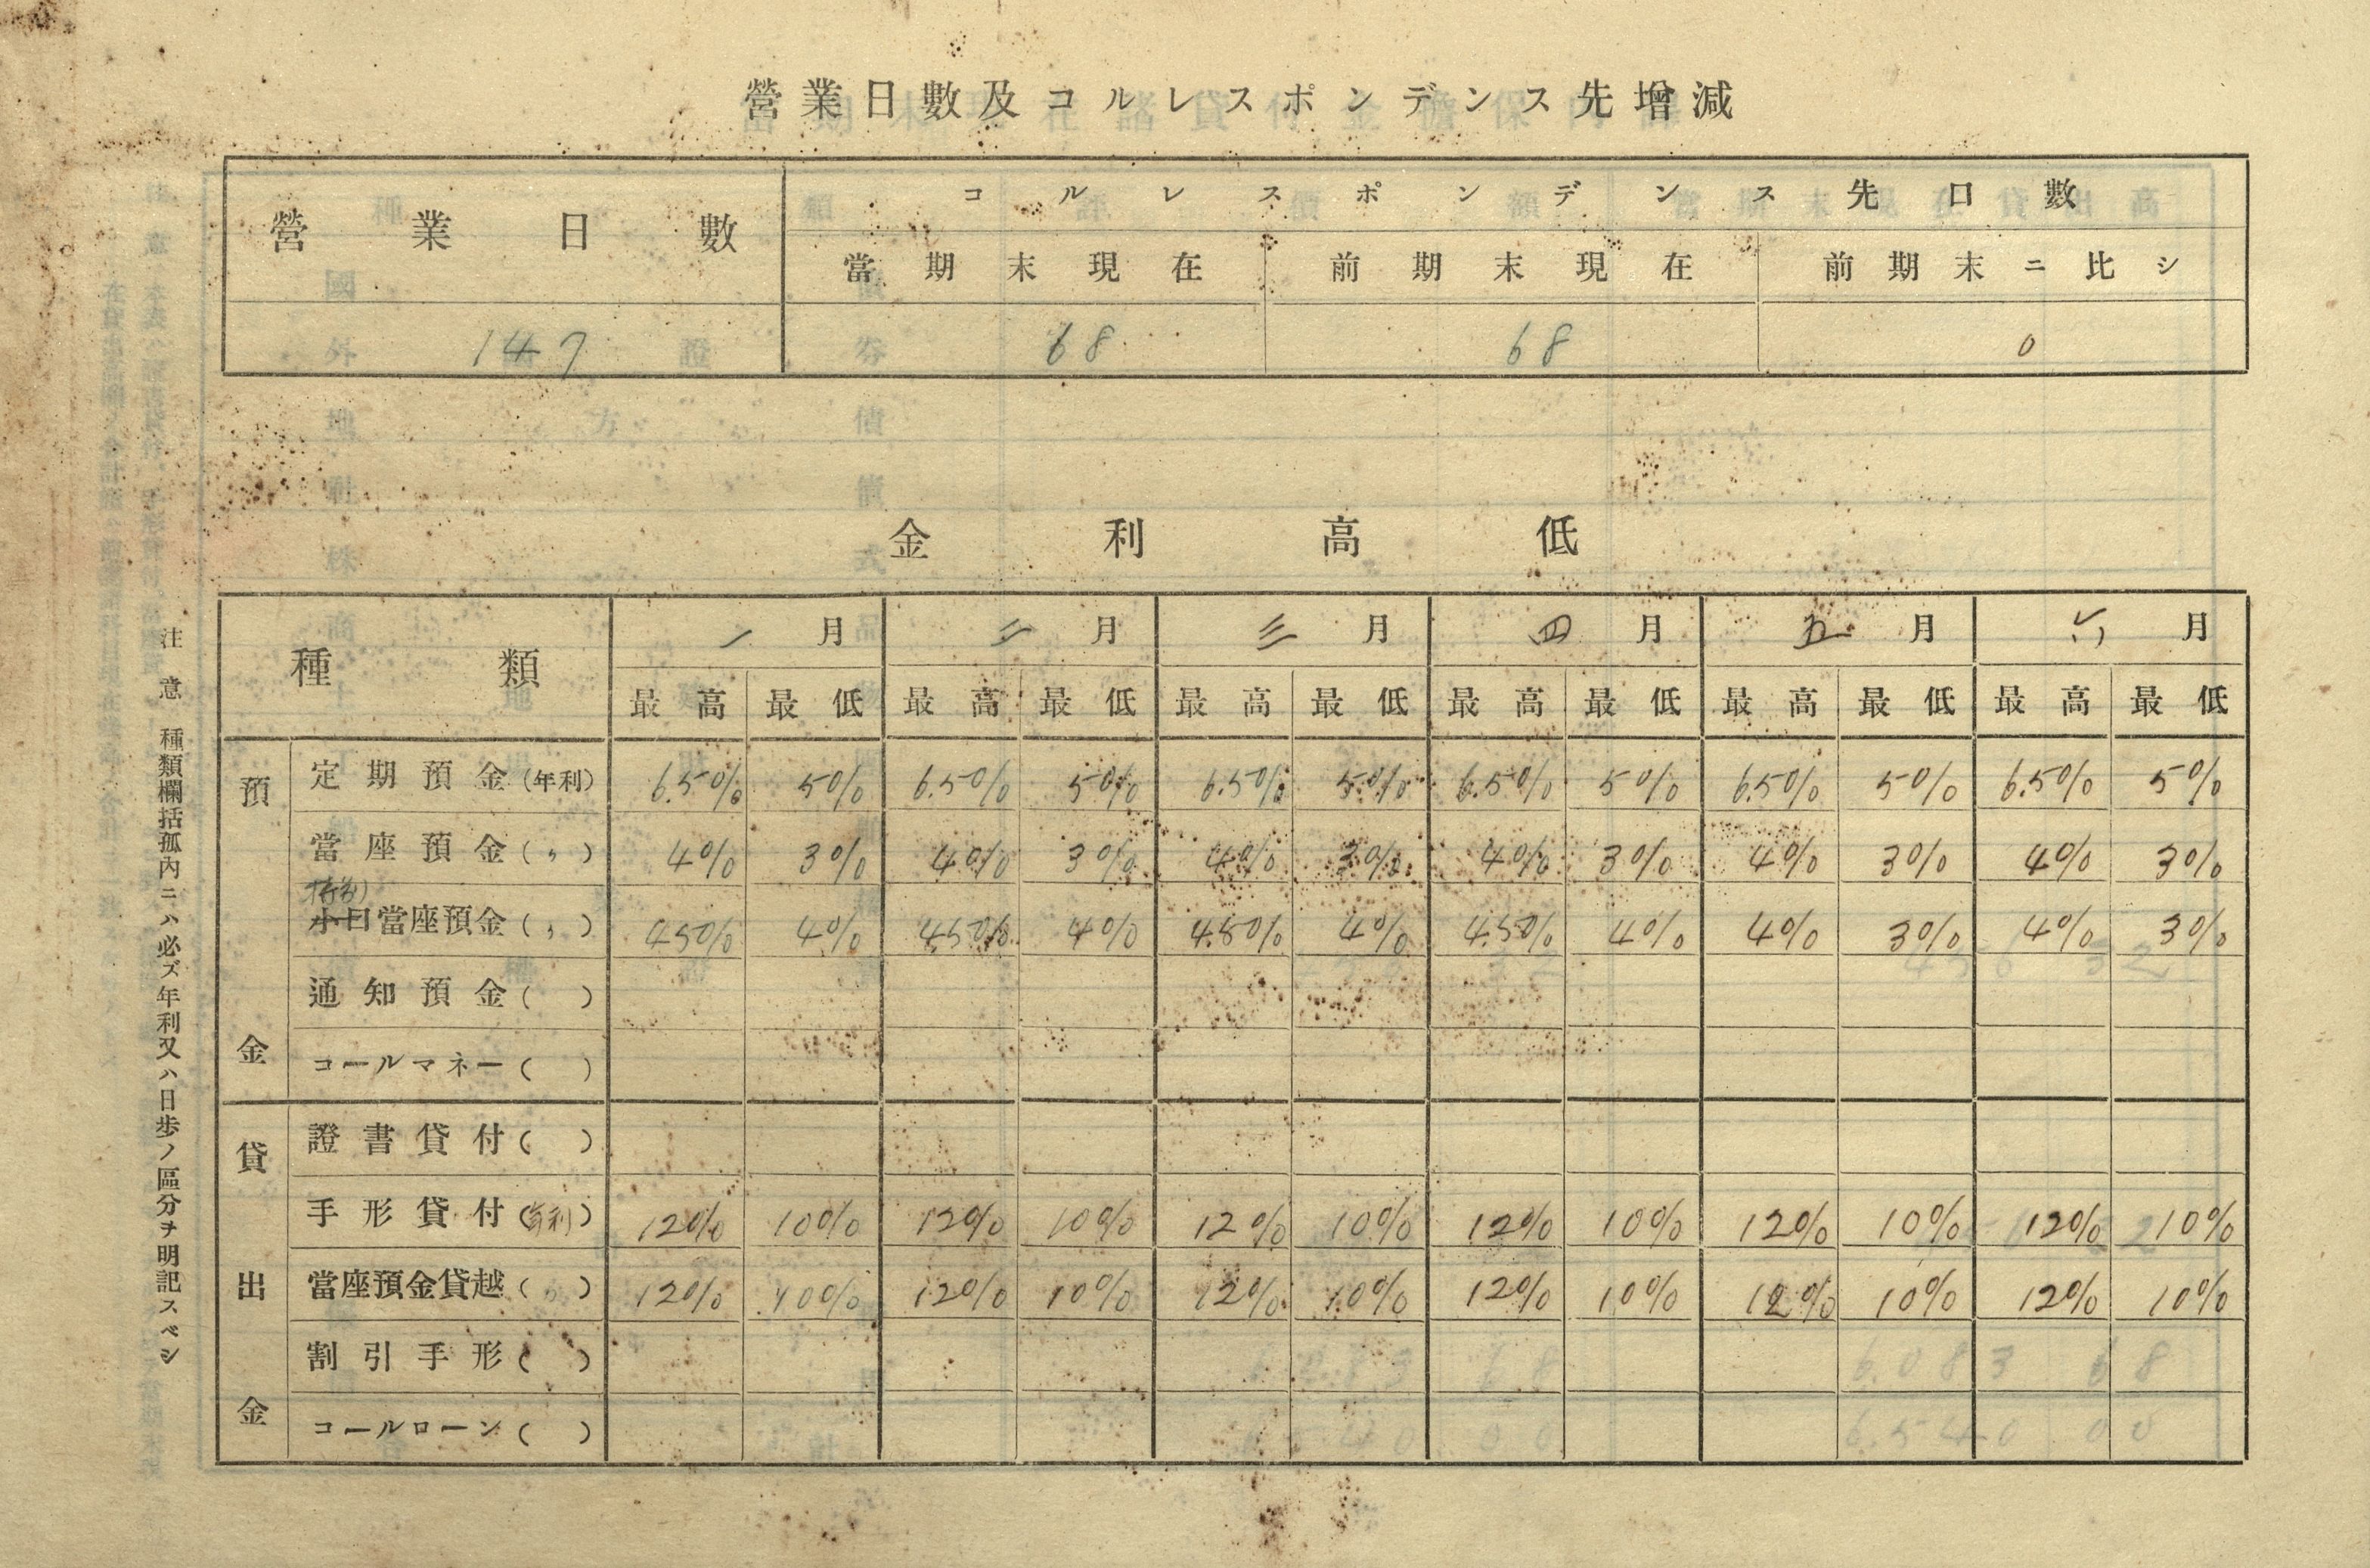 營業日數及コルレスポンデンス先增減
營業日數 コルレスポンデンス先口數
當期末現在 前期末現在 前期末ニ比シ
147 68 68 0
金利高低
種類 一月 二月 三月 四月 五月 六月
最高 最低 最高 最低 最高 最低 最高 最低 最高 最低 最高 最低
預金
定期預金(年利) 6.50% 50% 6.50% 50% 6.50% 50% 6.50% 50% 6.50% 50% 6.50% 5%
當座預金(〃) 4% 3% 4% 3% 4% 3% 4% 3% 4% 3% 4% 3%
特別
小口當座預金(〃) 450% 4% 4.50% 4% 4.50% 4% 4.50% 4% 4% 3% 4% 3%
通知預金( )
コールマネー( )
貸出金
證書貸付( )
手形貸付(年利) 12% 10% 12% 10% 12% 10% 12% 10% 12% 10% 12% 10%
當座預金貸越(〃) 12% 10% 12% 10% 12% 10% 12% 10% 12% 10% 12% 10%
割引手形( )
コールローン( )
注意 種類欄括孤內ニハ必ズ年利又ハ日步ノ區分ヲ明記スベシ